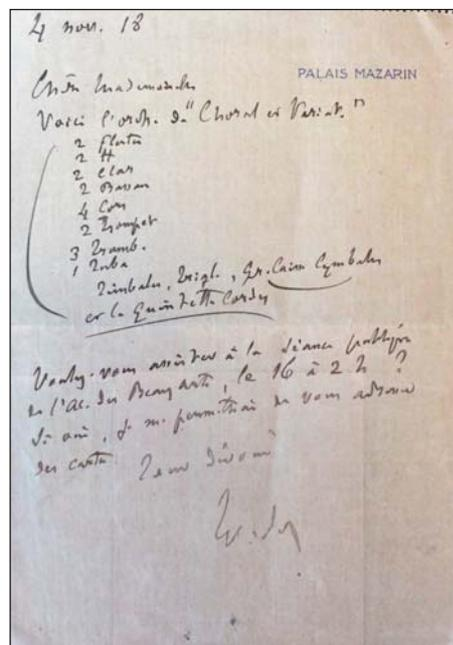 4 nov. 18
PALAIS MAZARIN
Chère Mademoiselle
Voici l'orch. du "Choral et Variat."
2 Flûtes
2 H
2 Clar
2 Bassons
4 Cors
2 Trompet
3 Tromb.
1 Tuba
Timbales, Trigl., Gr. Caisse Cymbales
et le Quintette Cordes
Voulez-vous assister à la séance publique
de l'Ac. des Beaux arts, le 16 à 2 h ?
Si oui, je me permettrai de vous adresser
des cartes. Votre dévoué
Widor